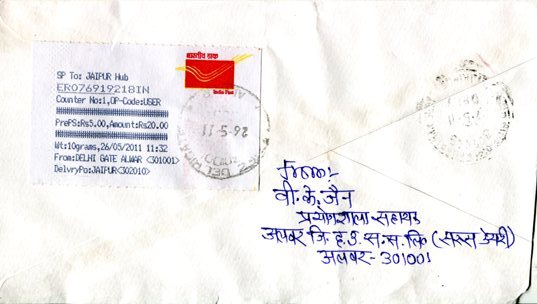 भारतीय डाक
India Post
SP To: JAIPUR Hub
ER076919218IN
Counter No:1,OP-Code:USER
PrePS:Rs5.00,Amount:Rs20.00
Wt:10grams,26/05/2011 11:32
From:DELHI GATE ALWAR <301001>
DelvryPo:JAIPUR<302010>
26-5-11
From:-
वी. के. जैन
प्रयोगशाला सहायक
अलवर जि. दु. उ. स. स. लि. (सरस डेयरी)
अलवर - 301001